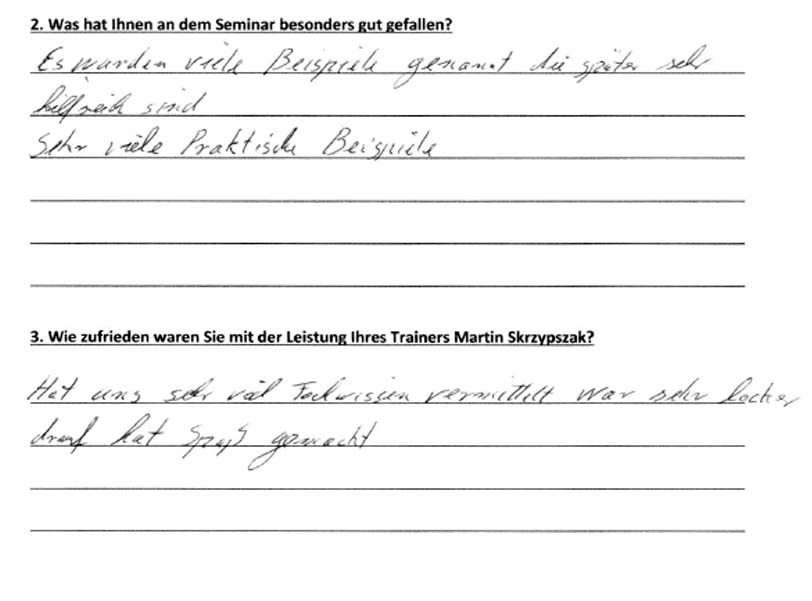 2. Was hat Ihnen an dem Seminar besonders gut gefallen?
Es wurden viele Beispiele genannt die später sehr
hilfreich sind
Sehr viele Praktische Beispiele
3. Wie zufrieden waren Sie mit der Leistung Ihres Trainers Martin Skrzypszak?
Hat uns sehr viel Fachwissen vermittelt war sehr locker
drauf hat Spaß gemacht